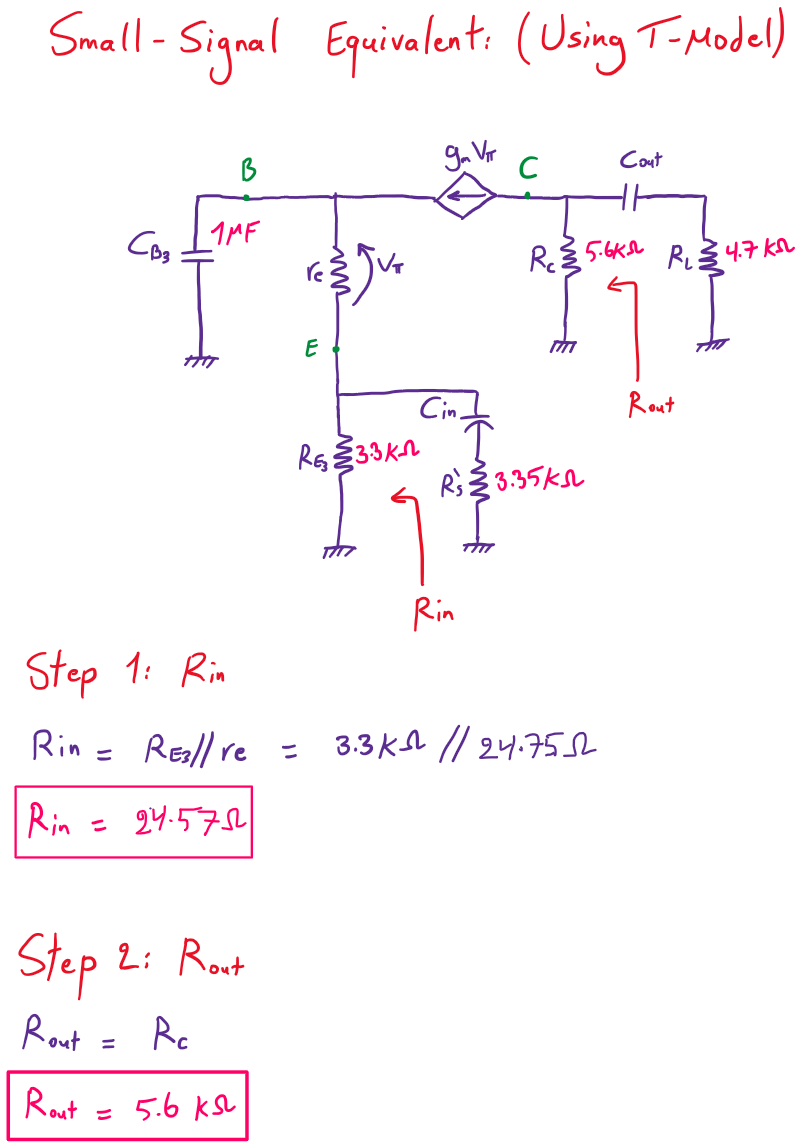 Small-Signal Equivalent: (Using T-Model)
B
gmVπ
C
Cout
CB3
1μF
re
Vπ
Rc
5.6kΩ
RL
4.7 kΩ
E
Rout
Cin
RE3
3.3kΩ
R's
3.35kΩ
Rin
Step 1: Rin
Rin = RE3//re = 3.3kΩ // 24.75Ω
Rin = 24.57Ω
Step 2: Rout
Rout = Rc
Rout = 5.6 kΩ